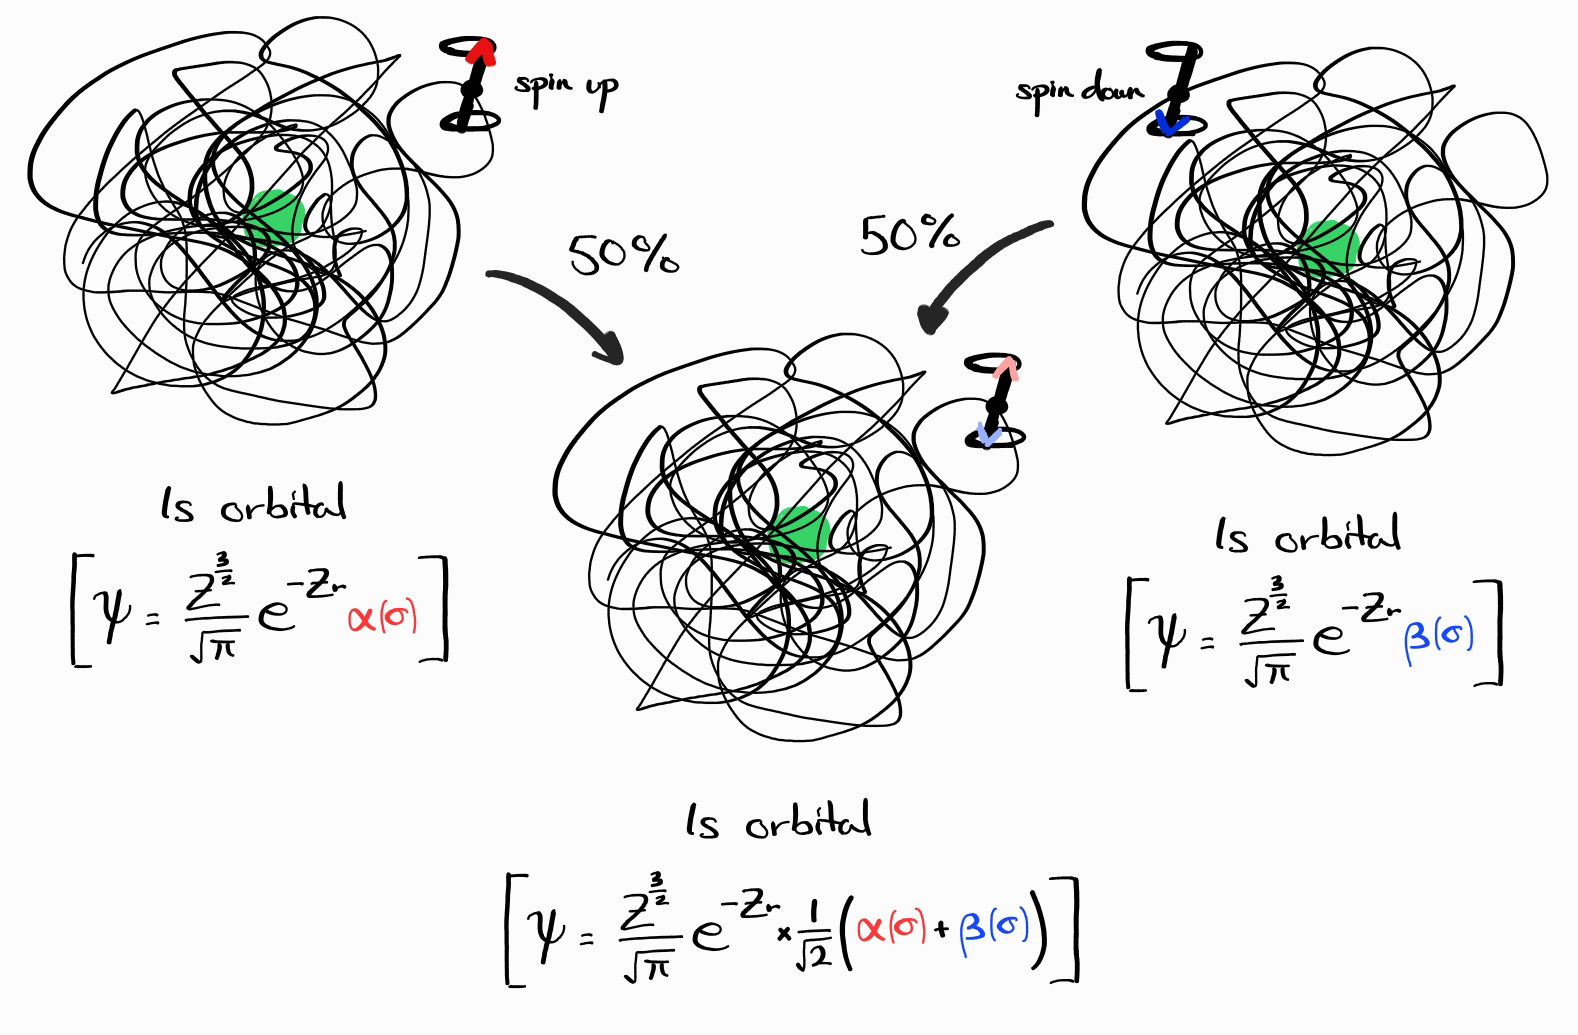 spin up
spin down
50%
50%
1s orbital
[ψ = Z^(3/2)/√π e^(-Zr) α(σ)]
1s orbital
[ψ = Z^(3/2)/√π e^(-Zr) β(σ)]
1s orbital
[ψ = Z^(3/2)/√π e^(-Zr) × 1/√2 (α(σ) + β(σ))]